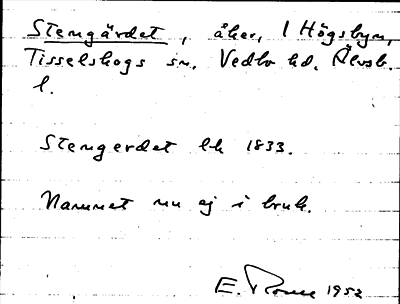 Stengärdet, åker, 1 Högsbyn,
Tisselskogs sn. Vedbo hd. Älvsb.
l.
Stengerdet lh 1833.
Namnet nu ej i bruk.
E. 1952